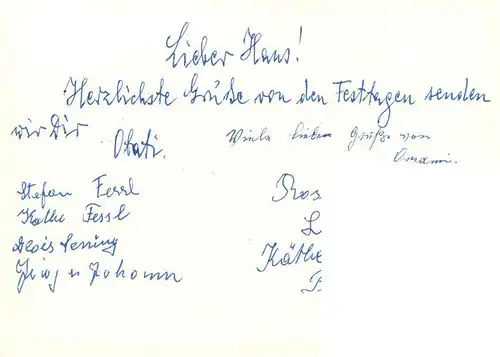 Lieber Hans!
Herzlichste Grüße von den Festtagen senden
wir Dir Otati. Viele lieben Grüße von
Omami.
Stefan Fessl Ros
Käthe Fessl L
Alois Käthe
u Johann